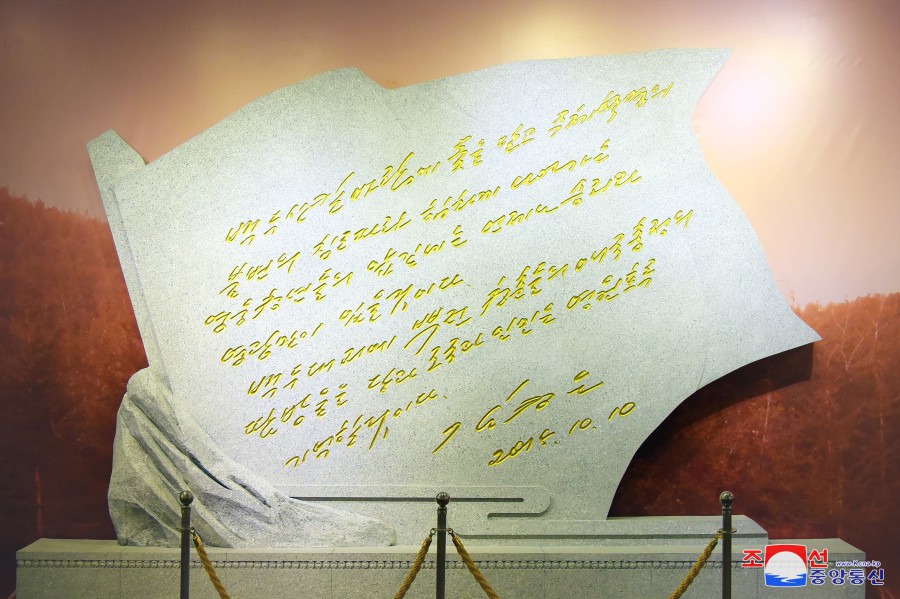 백두산칼바람에 돛을 달고 주체혁명의
불변의 침로따라 힘차게 나아가는
영웅청년들의 앞길에는 언제나 승리와
영광만이 있을것이다.
백두대지에 뿌린 청춘들의 애국충정의
땀방울을 당과 조국과 인민은 영원토록
기억할것이다.
김정은
2015. 10. 10
조선
www.kcna.kp
중앙통신